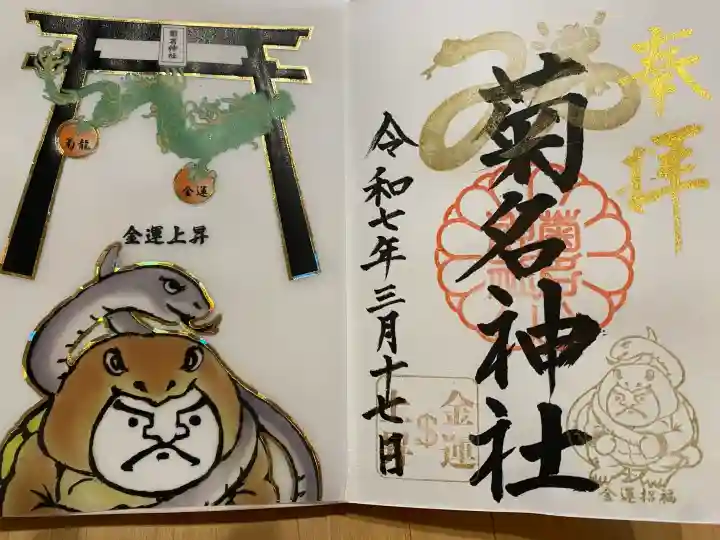 奉拝
菊名神社
令和七年三月十七日
金運
$
金運招福
菊名神社
菊龍
金運
金運上昇